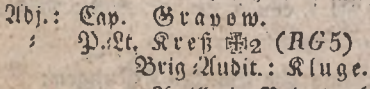 Adj.: Cap. Grapow.
: P.-Lt. Kreß ✠2 (RG5)
Brig.-Audit.: Kluge.